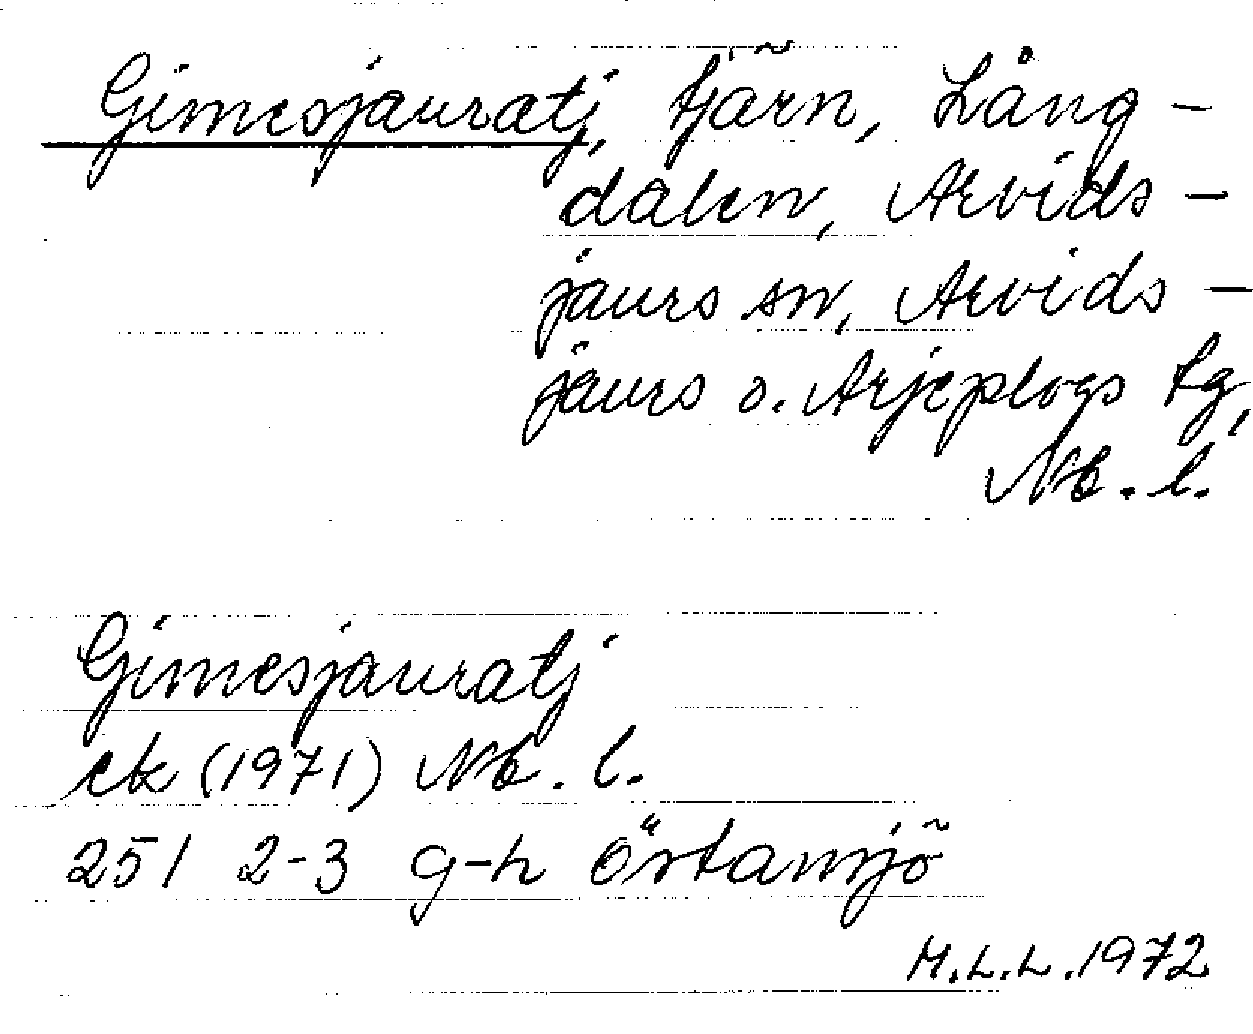 Gimesjauratj, tjärn, Lång-
dalen, Arvids-
jaurs sn, Arvids-
jaurs o. Arjeplogs tg,
Nb. l.
Gimesjauratj
ek (1971) Nb. l.
251 2-3 g-h Östansjö
M.L.L. 1972